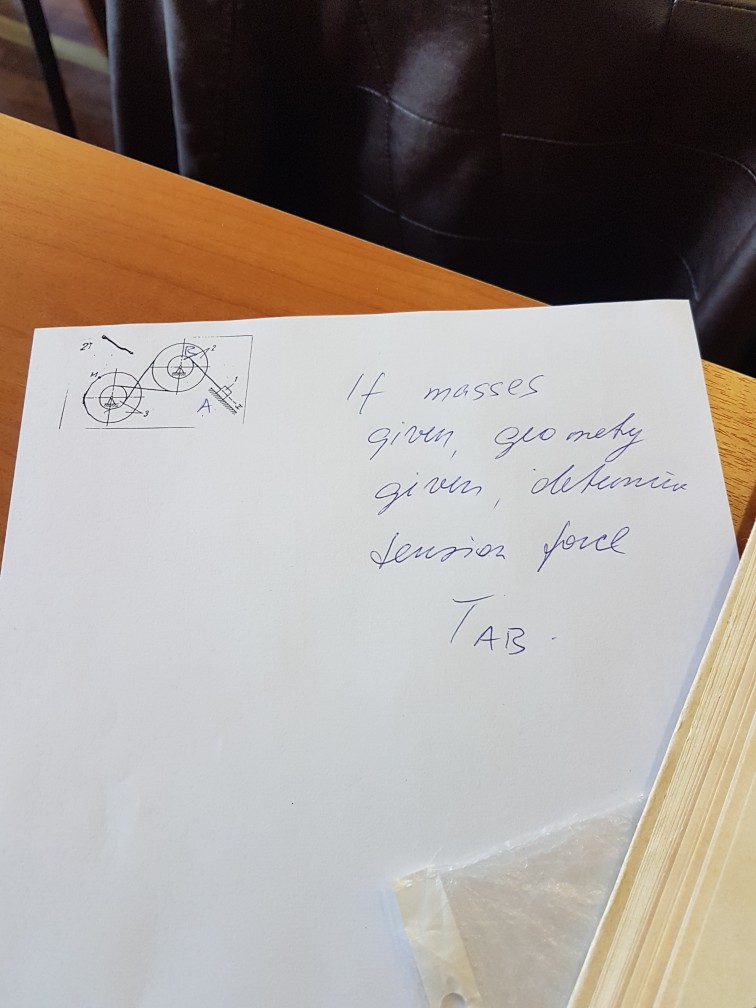 21
B 2
M 1
A 2
3
If masses
given, geometry
given, determine
tension force
T AB.